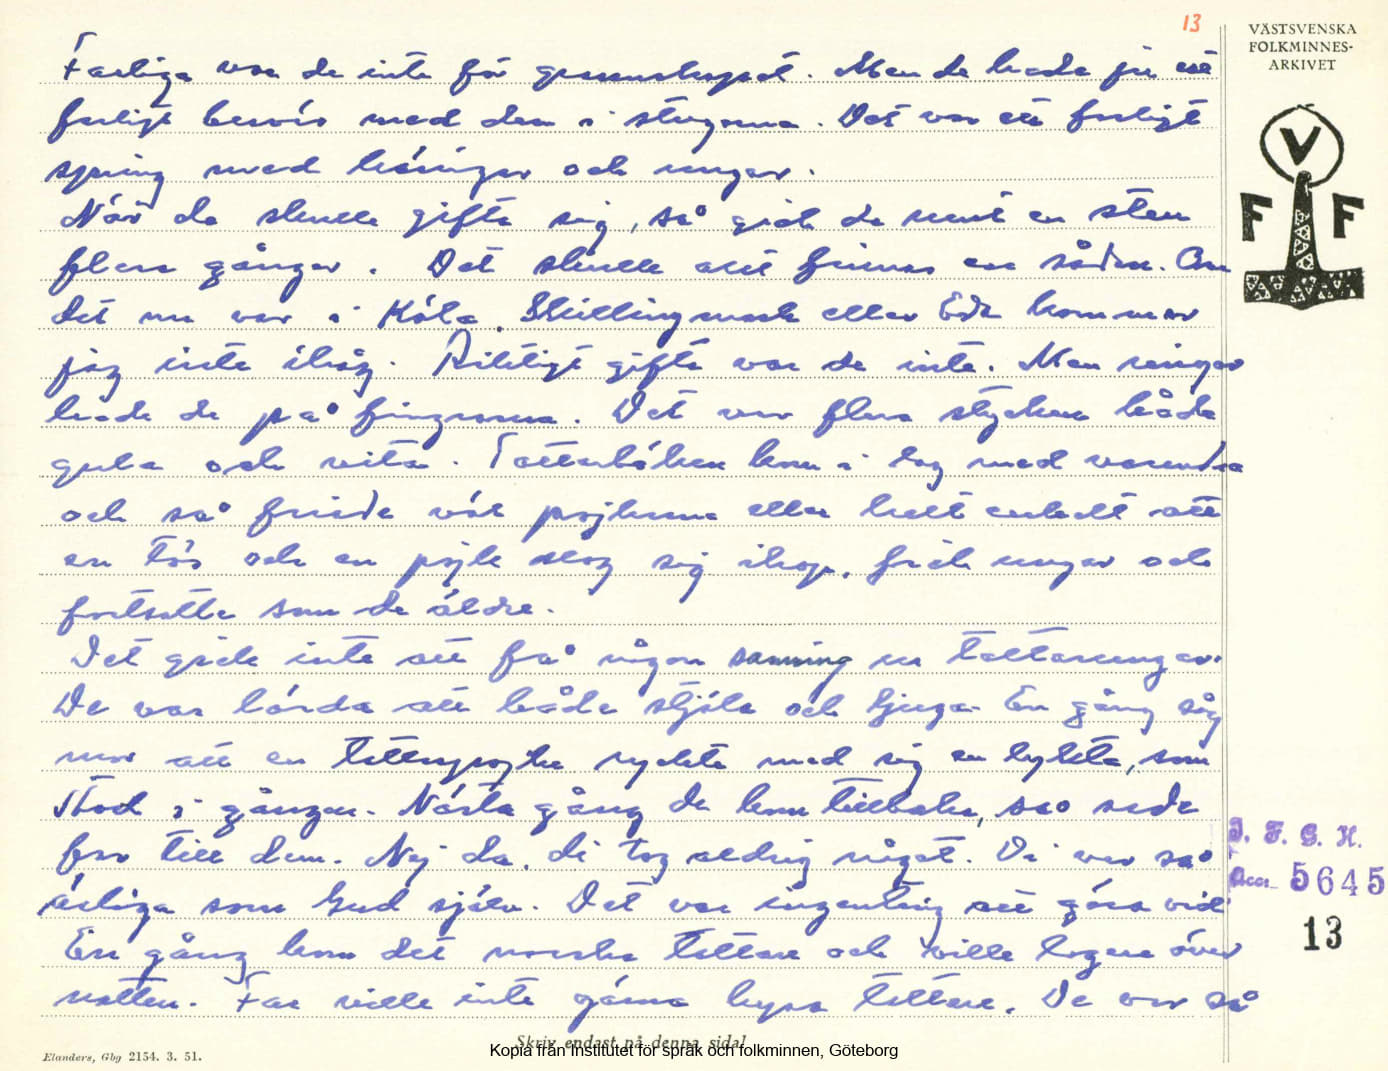 13
VÄSTSVENSKA
FOLKMINNES-
ARKIVET
V
F F
Farliga var de inte för grannskapet. Men de hade ju ett
farligt besvär med dem i stugorna. Det var ett farligt
spring med käringar och ungar.
När de skulle gifta sig, så gick de runt en sten
flera gånger. Det skulle att finnas en sådan. Om
det nu var i Köla, Skillingmark eller Eda kommer
jag inte ihåg. Riktigt gifta var de inte. Men ringar
hade de på fingrarna. Det var flera stycken både
gula och vita. Tattarböken kom i lag med varandra
och så friade väl pojkarna eller helt enkelt att
en tös och en pojk slog sig ihop, fick ungar och
fortsatte som de äldre.
Det gick inte att få någon sanning ur tattarungar.
De var lärda att både stjäla och ljuga. En gång såg
mor att en tattarpojke ryckte med sig en lykta, som
stod i gången. Nästa gång de kom tillbaka, sa sade
far till dem. Nej då, di tog aldrig något. Di var så
ärliga som Gud själv. Det var ingenting att göra vid
En gång kom det norska tattare och ville logera över
natten. Far ville inte gärna hysa tattare. De var så
I. F. G. H.
Acc. 5645
13
Skriv endast på denna sida!
Kopia från Institutet för språk och folkminnen, Göteborg
Elanders, Gbg 2154. 3. 51.